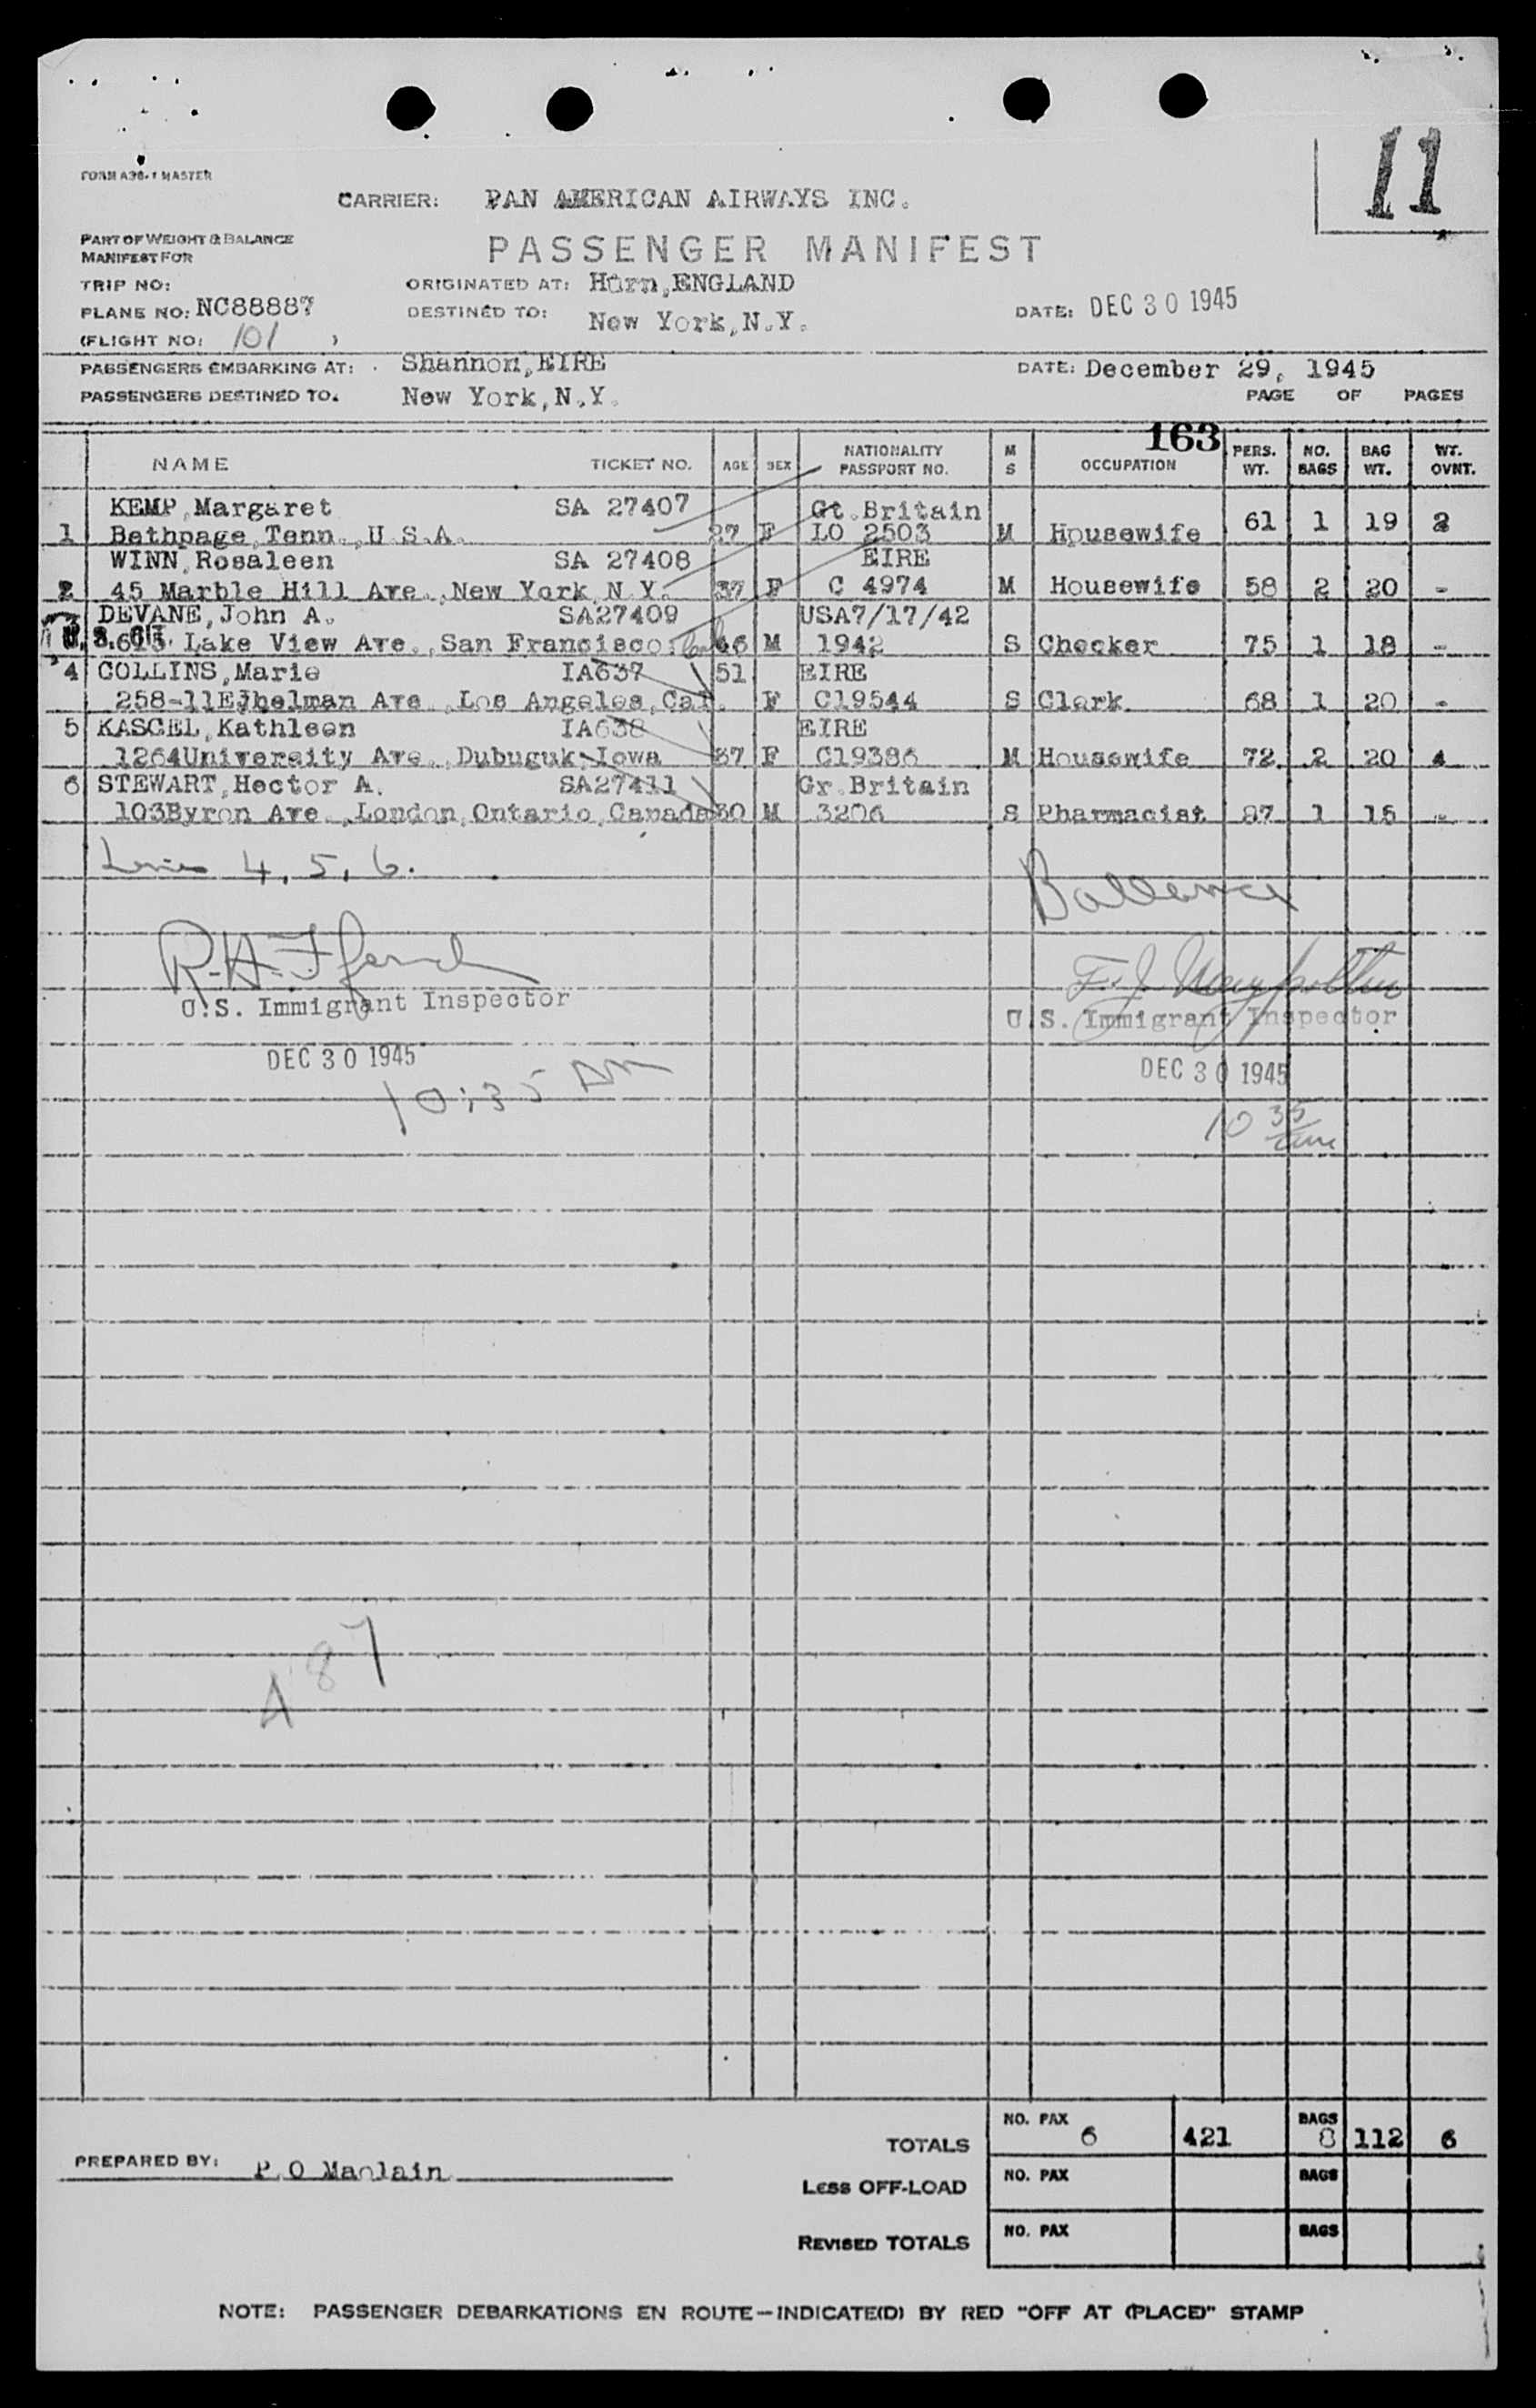 11
FORM A36-1 MASTER
CARRIER: PAN AMERICAN AIRWAYS INC.
PART OF WEIGHT & BALANCE
MANIFEST FOR
PASSENGER MANIFEST
TRIP NO:
ORIGINATED AT: Hurn, ENGLAND
PLANE NO: NC88887
DESTINED TO: New York, N.Y.
DATE: DEC 30 1945
(FLIGHT NO: 101 )
PASSENGERS EMBARKING AT: Shannon, EIRE
DATE: December 29, 1945
PASSENGERS DESTINED TO. New York, N.Y.
PAGE OF PAGES
163
NAME TICKET NO. AGE SEX NATIONALITY PASSPORT NO. M S OCCUPATION PERS. WT. NO. BAGS BAG WT. WT. OVNT.
KEMP, Margaret SA 27407 Gt. Britain 61 1 19 2
1 Bethpage, Tenn., U.S.A. 27 F LO 2503 M Housewife
WINN, Rosaleen SA 27408 EIRE
2 45 Marble Hill Ave., New York, N.Y. 37 F C 4974 M Housewife 58 2 20 -
DEVANE, John A. SA27409 USA7/17/42
U.S. CIT. 615 Lake View Ave., San Francisco, 46 M 1942 S Checker 75 1 18 -
4 COLLINS, Marie IA637 51 EIRE
258-11 Ave., Los Angeles, Cal. F C19544 S Clerk 68 1 20 -
5 KASCEL, Kathleen IA638 EIRE
1264University Ave., Dubuguk, Iowa 37 F C19386 M Housewife 72 2 20 4
6 STEWART, Hector A. SA27411 Gr. Britain
103Byron Ave., London, Ontario, Canada 30 M 3206 S Pharmacist 87 1 15 -
Lines 4, 5, 6.
Ballance
U.S. Immigrant Inspector
U.S. Immigrant Inspector
DEC 30 1945
DEC 30 1945
10:35 AM
10 35 am
A 87
TOTALS NO. PAX 6 421 BAGS 8 112 6
PREPARED BY: P. O Maclain
LESS OFF-LOAD NO. PAX BAGS
REVISED TOTALS NO. PAX BAGS
NOTE: PASSENGER DEBARKATIONS EN ROUTE—INDICATE(D) BY RED "OFF AT (PLACE)" STAMP